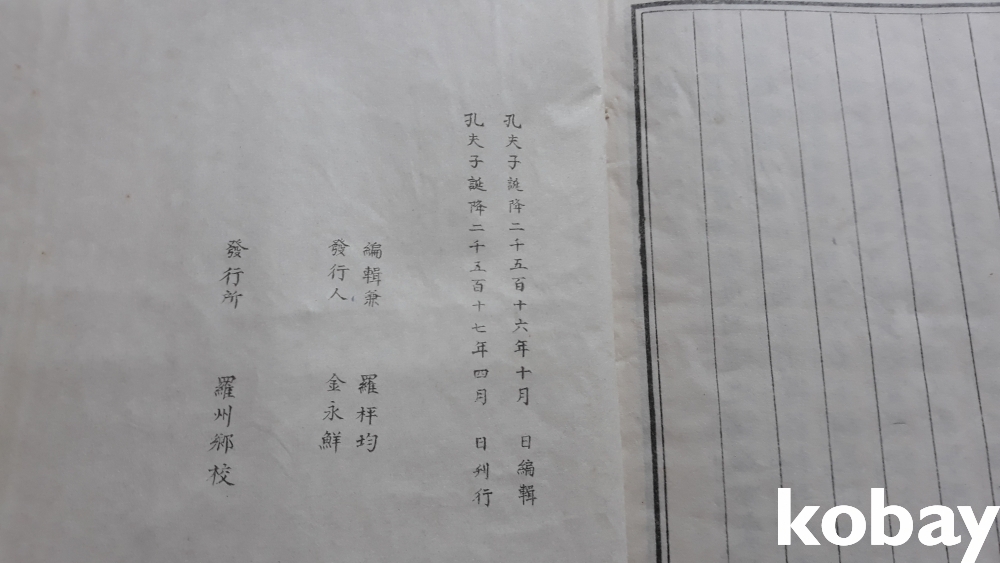 孔夫子誕降二千五百十六年十月 日編輯
孔夫子誕降二千五百十七年四月 日刊行
編輯兼 羅枰均
發行人 金永鮮
發行所 羅州鄕校
kobay